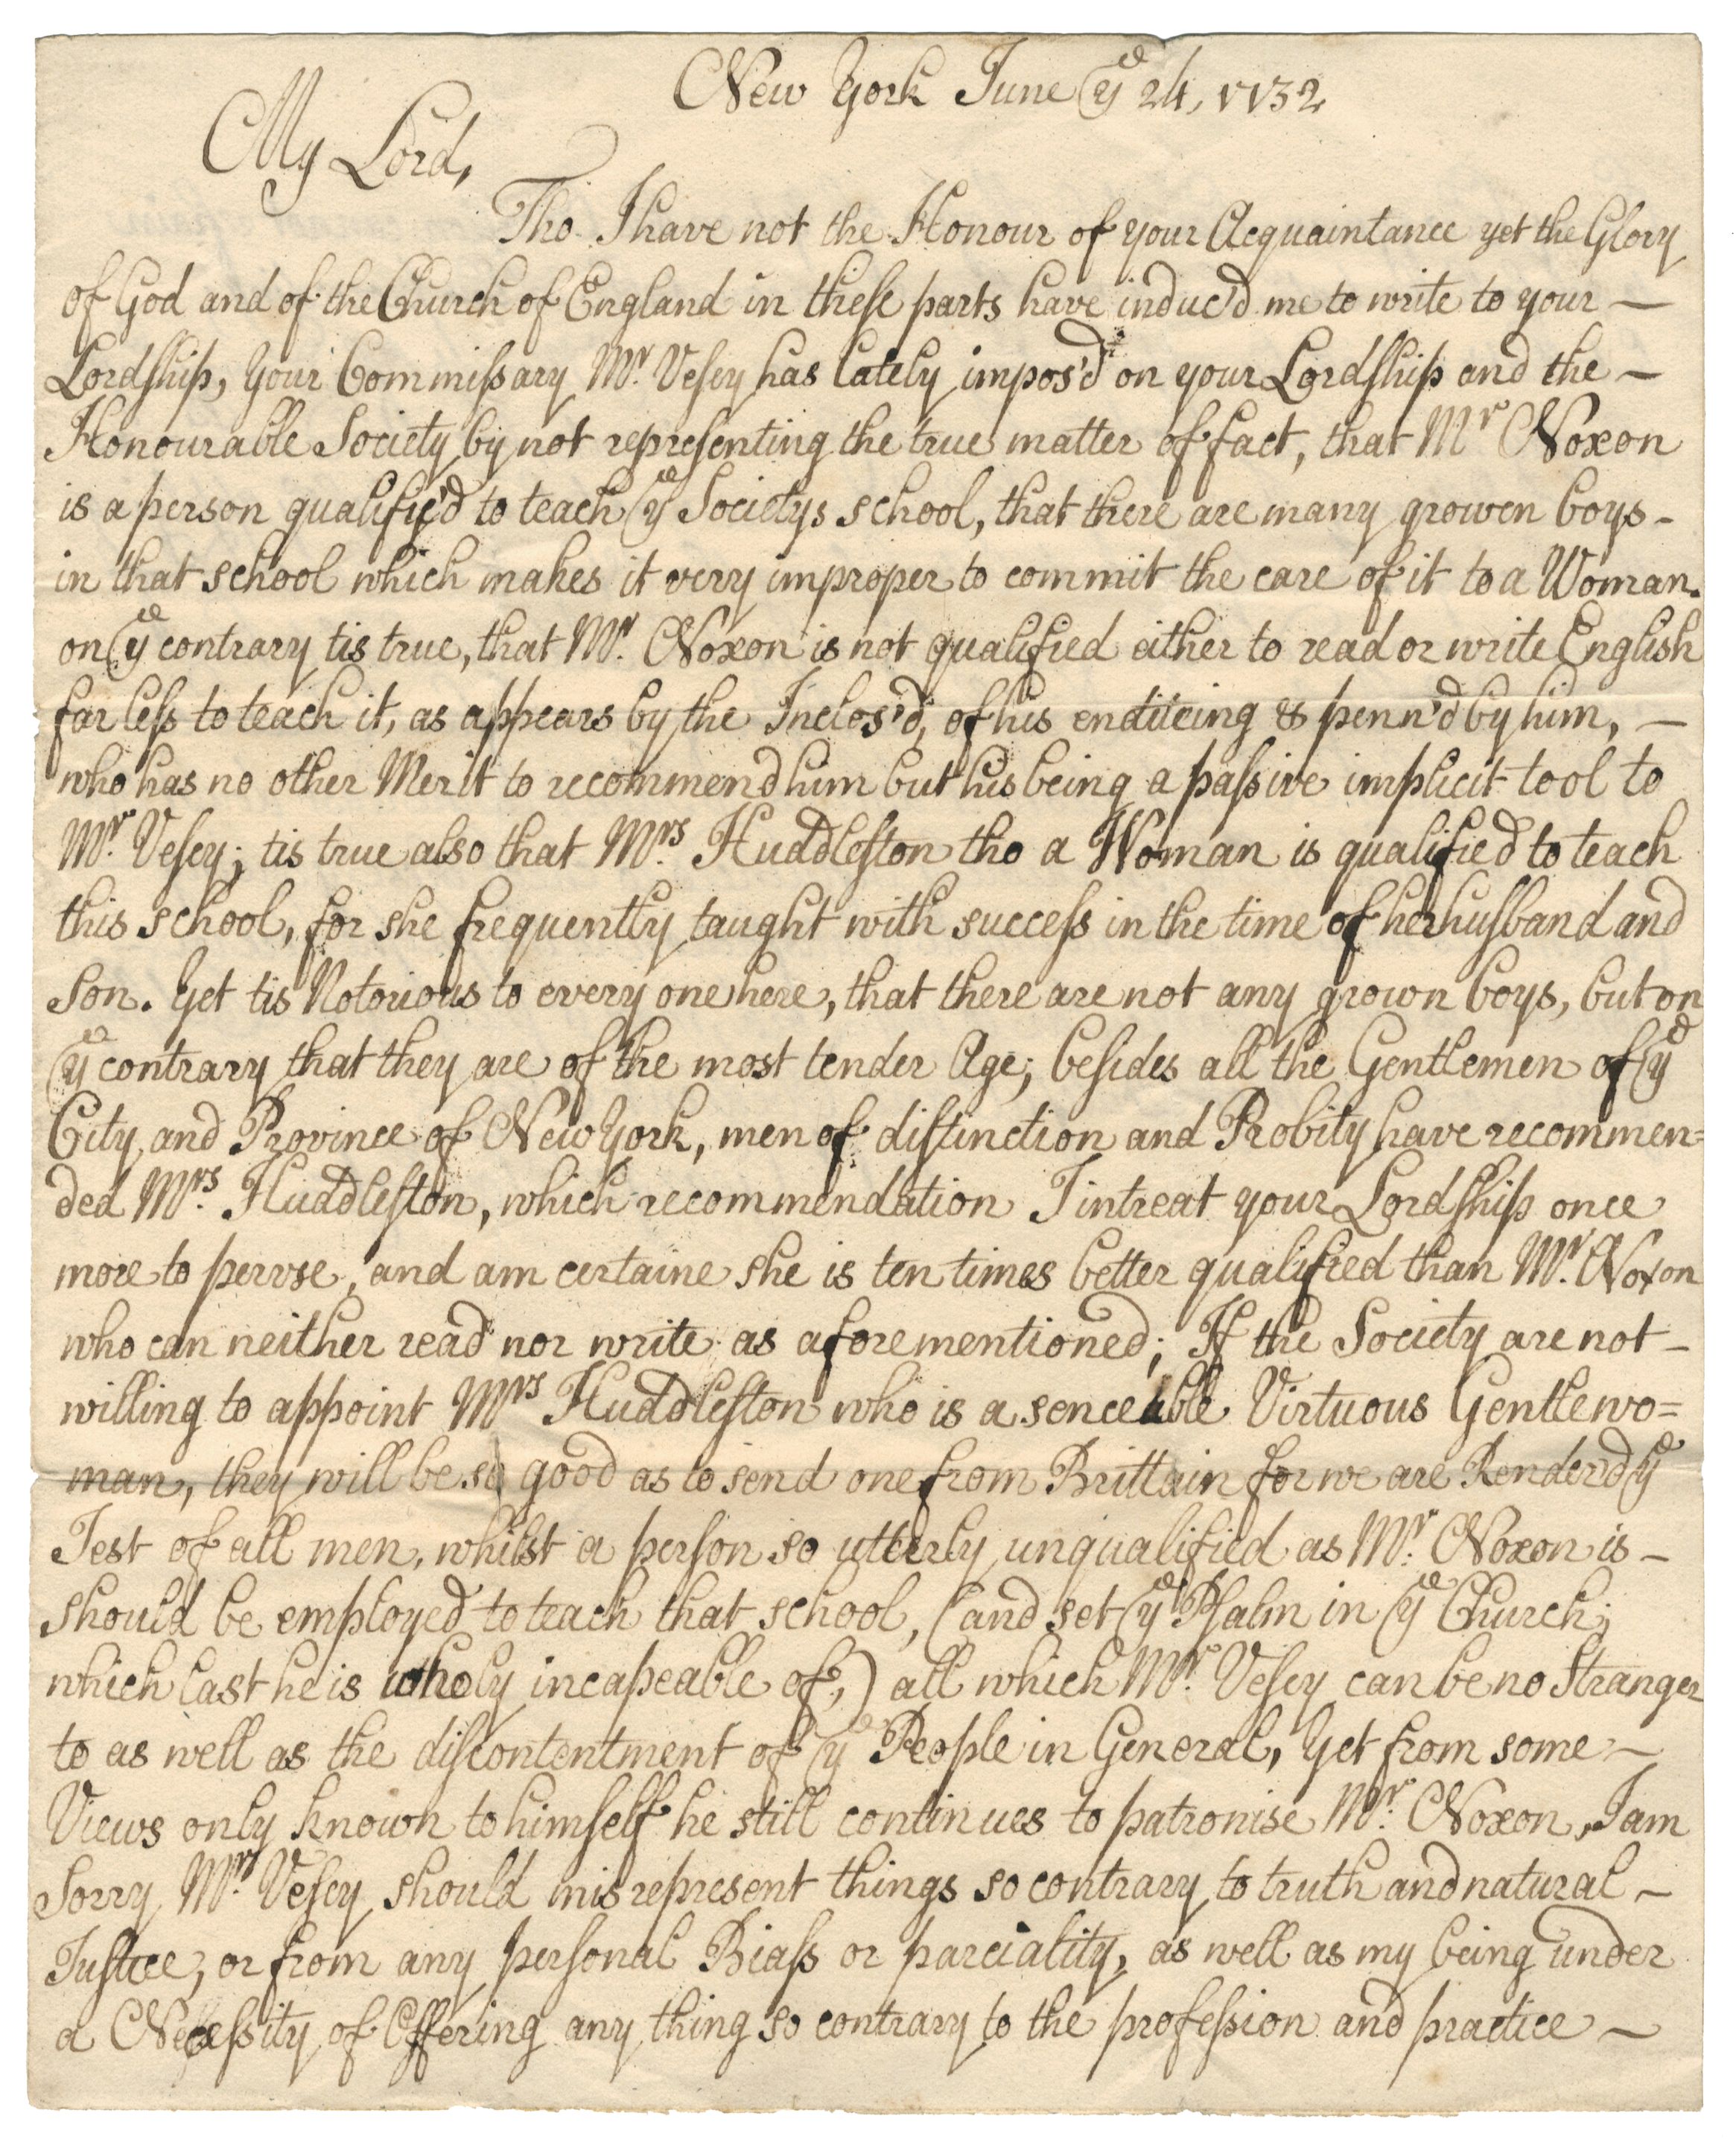 New York June ye 24, 1732
My Lord,
Tho I have not the Honour of your Acquaintance yet the Glory
of God and of the Church of England in these parts have induc'd me to write to your —
Lordship, Your Commissary Mr. Vesey has lately impos'd on your Lordship and the —
Honourable Society by not representing the true matter of fact, that Mr Noxon
is a person qualify'd to teach ye Societys school, that there are many growen boys -
in that school which makes it very improper to commit the care of it to a Woman.
on ye contrary tis true, that Mr. Noxon is not qualified either to read or write English
far less to teach it, as appears by the Inclos'd, of his endiiteing & penn'd by him, —
who has no other Merit to recommend him but his being a passive implicit tool to
Mr. Vesey; tis true also that Mrs. Huddleston tho a Woman is qualified to teach
this school, for she frequently taught with success in the time of her husband and
Son. Yet tis Notorious to every one here, that there are not any grown boys, but on
ye contrary that they are of the most tender Age; besides all the Gentlemen of ye
City and Province of New York, men of distinction and Probity have recommen=
ded Mrs. Huddleston, which recommendation I intreat your Lordship once
more to pervse, and am certaine she is ten times better qualified than Mr. Noxon
who can neither read nor write as aforementioned; If the Society are not -
willing to appoint Mrs Huddleston who is a senceable Virtuous Gentlewo=
man, they will be so good as to send one from Brittain for we are Render'd ye
Jest of all men, whilst a person so utterly unqualified as Mr. Noxon is -
should be employed to teach that school, (and set ye Psalm in ye Church;
which last he is wholy incapeable of,) all which Mr. Vesey can be no Stranger
to as well as the discontentment of ye People in General, Yet from some -
Views only known to himself he still continues to patronise Mr. Noxon, I am
Sorry Mr. Vesey should misrepresent things so contrary to truth and natural -
Justice, or from any personal Biass or parciality, as well as my being under
a Necessity of Offering any thing so contrary to the profession and practice —